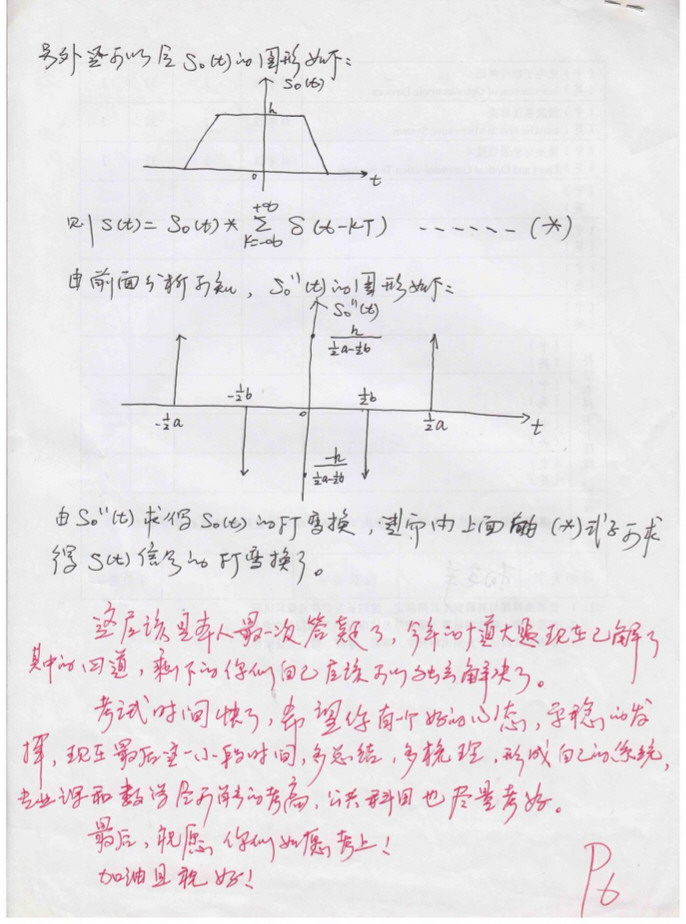 另外还可以令S₀(t)的图形如下：
S₀(t)
h
0
t
则 S(t) = S₀(t) * ∑ δ(t-kT) ------ (*)
+∞
k=-∞
由前面分析可知，S₀''(t)的图形如下：
S₀''(t)
h/(½a-½b)
-½a
-½b
0
½b
½a
t
-h/(½a-½b)
由S₀''(t)求得S₀(t)的FT变换，进而由上面的(*)式子可求
得S(t)信号的FT变换了。
这应该是本人最后一次答疑了，今年的十道大题现在已解了
其中的四道，剩下的你们自己应该可以独立解决了。
考试时间快了，希望你有一个好的心态，平稳的发
挥，现在最后这一小段时间，多总结，多梳理，形成自己的系统，
专业课和数学尽可能的考高，公共科目也尽量考好。
最后，祝愿你们如愿考上！
加油且祝好！
P6